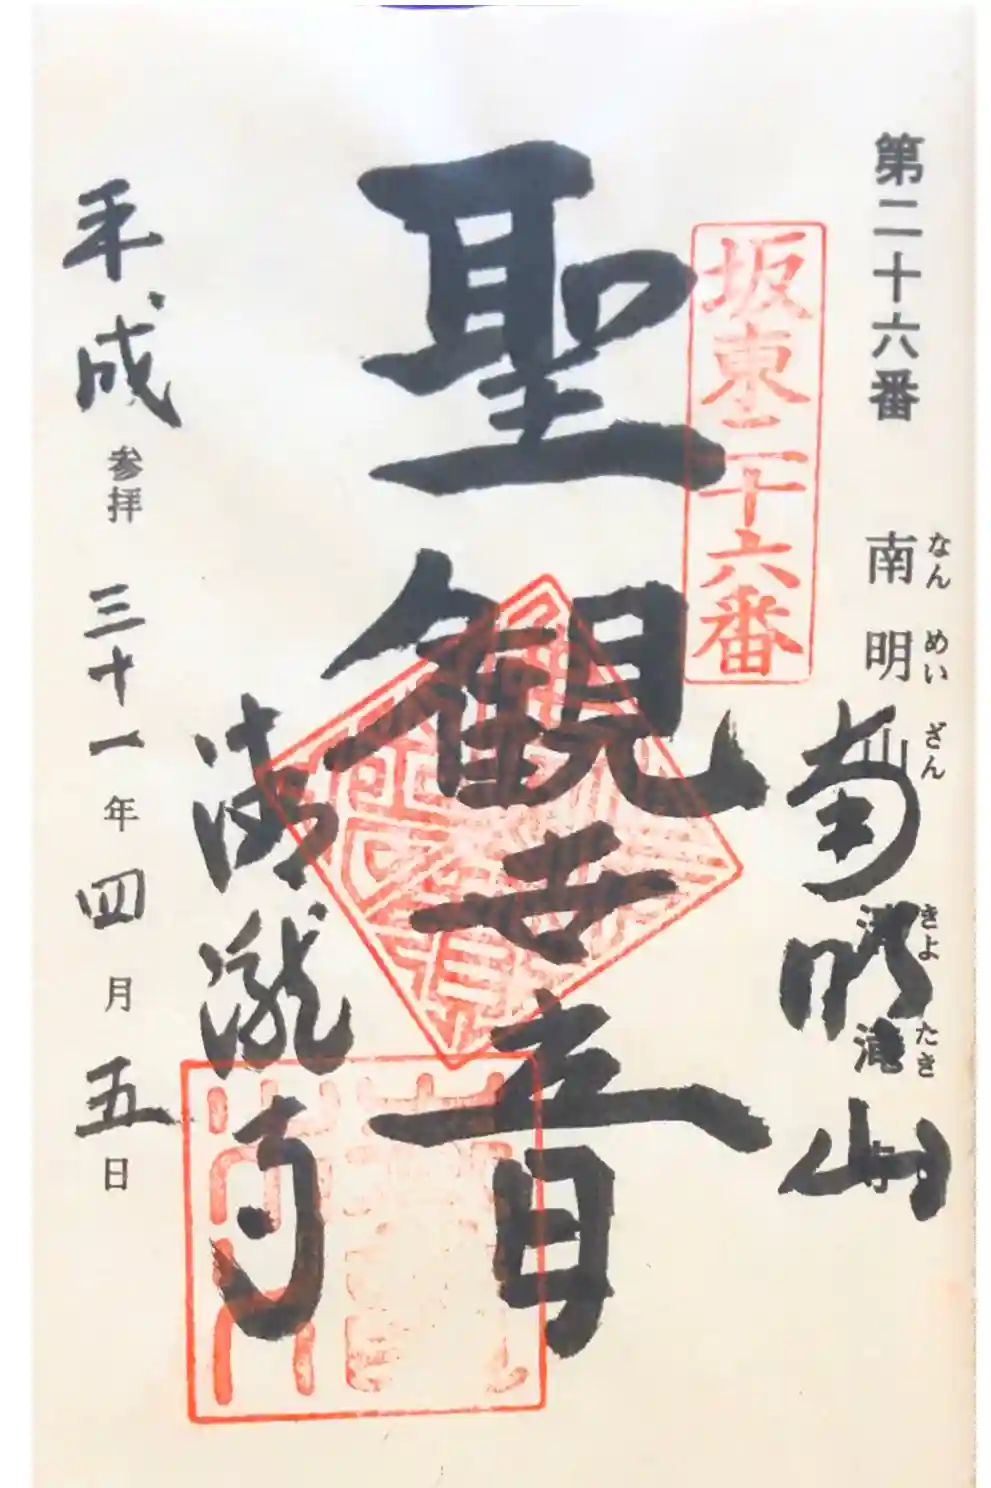 第二十六番 南明山 清滝寺
なんめいざん きよたき
南明山
坂東二十六番
聖観世音
清瀧寺
平成三十一年四月五日
参拝